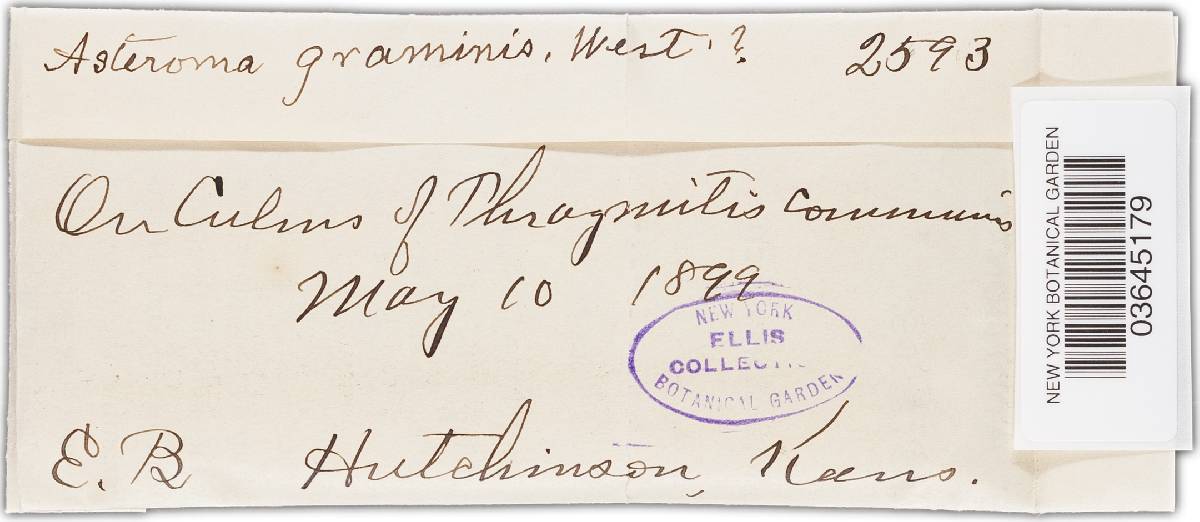 Asteroma graminis, West. ? 2593
On Culms of Phragmitis communis
May 10 1899
NEW YORK
ELLIS
COLLECTION
BOTANICAL GARDEN
E. B Hutchinson, Kans.
NEW YORK BOTANICAL GARDEN
03645179